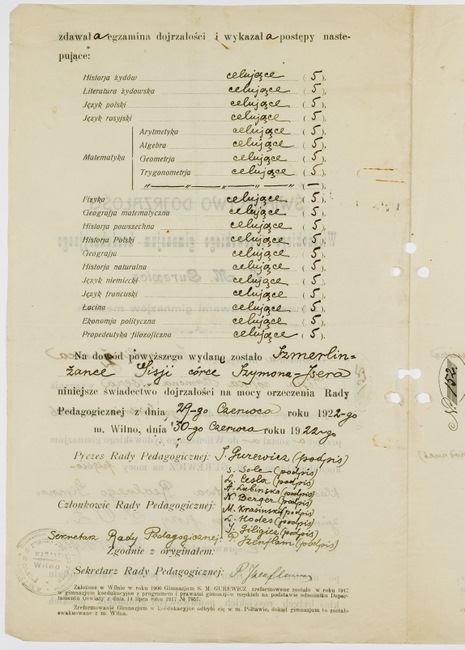 zdawała egzamina dojrzałości i wykazała postępy nastę-
pujące:
Historja żydów celujące (5),
Literatura żydowska celujące (5),
Język polski celujące (5),
Język rosyjski celujące (5),
Matematyka
Arytmetyka celujące (5),
Algebra celujące (5),
Geometrja celujące (5),
Trygonometrja celujące (5),
Fizyka celujące (5),
Geografja matematyczna celujące (5),
Historja powszechna celujące (5),
Historja Polski celujące (5),
Geografja celujące (5),
Historja naturalna celujące (5),
Język niemiecki celujące (5),
Język francuski celujące (5),
Łacina celujące (5),
Ekonomja polityczna celujące (5),
Propedeutyka filozoficzna celujące (5),
Na dowód powyższego wydano zostało Szmerlin-
żance córce Szymona-
niniejsze świadectwo dojrzałości na mocy orzeczenia Rady
Pedagogicznej z dnia 29-go Czerwca roku 1922-go
m. Wilno, dnia 30-go Czerwca roku 1922-go
Prezes Rady Pedagogicznej: S. Gurewicz (podpis)
(podpis)
(podpis)
Członkowie Rady Pedagogicznej: (podpis)
N. Berger (podpis)
M. (podpis)
L. Hodes (podpis)
(podpis)
Sekretarz Rady Pedagogicznej: (podpis)
Zgodnie z oryginałem:
Sekretarz Rady Pedagogicznej:
Wilno
Założone w Wilnie w roku 1906 Gimnazjum S. M. GUREWICZ, zreformowane zostało w roku 1917
w gimnazjum koedukacyjne z programem i prawami gimnazjów męskich na podstawie odnośnika Depar-
tamentu Oświaty z dnia 14 lipca roku 1917 № 7957.
Zreformowanie Gimnazjum w koedukacyjne odbyło się w m. Połtawie, dokąd gimnazjum to zostało
ewakuowane z m. Wilna.
№ 152.